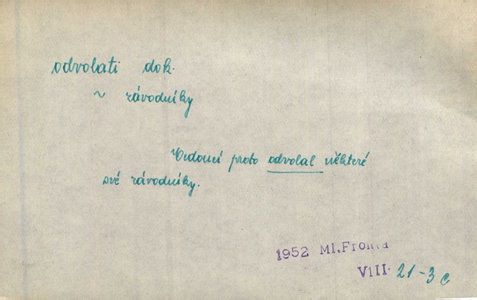 odvolati dok.
~ závodníky
Vedoucí proto odvolal některé
své závodníky.
1952 Ml.Fronta
VIII. 21-3c